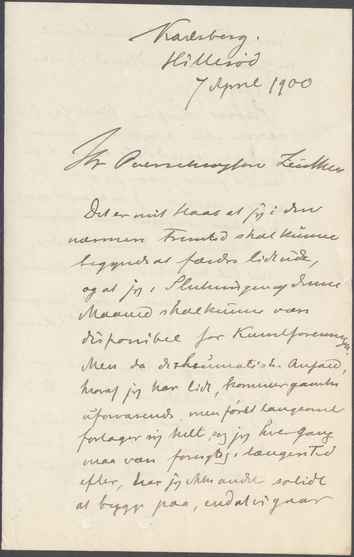 Karlsberg.
Hillerød
7 April 1900
Hr Overretssagfører Zeuthen
Det er mit Haab at jeg i den
nærmeste Fremtid skal kunne
begynde at færdes lidt ude,
og at jeg i Slutningen af denne
Maaned skal kunne være
disponibel for Kunstforeningen.
Men da de rheumatiske Anfald,
hvoraf jeg har lidt, kommer ganske
uforvarende, men først langsomt
forlader mig helt, og jeg hver Gang
maa være forsigtig i længere Tid
efter, har jeg ikke andet solidt
at bygge paa, end at vi gaar